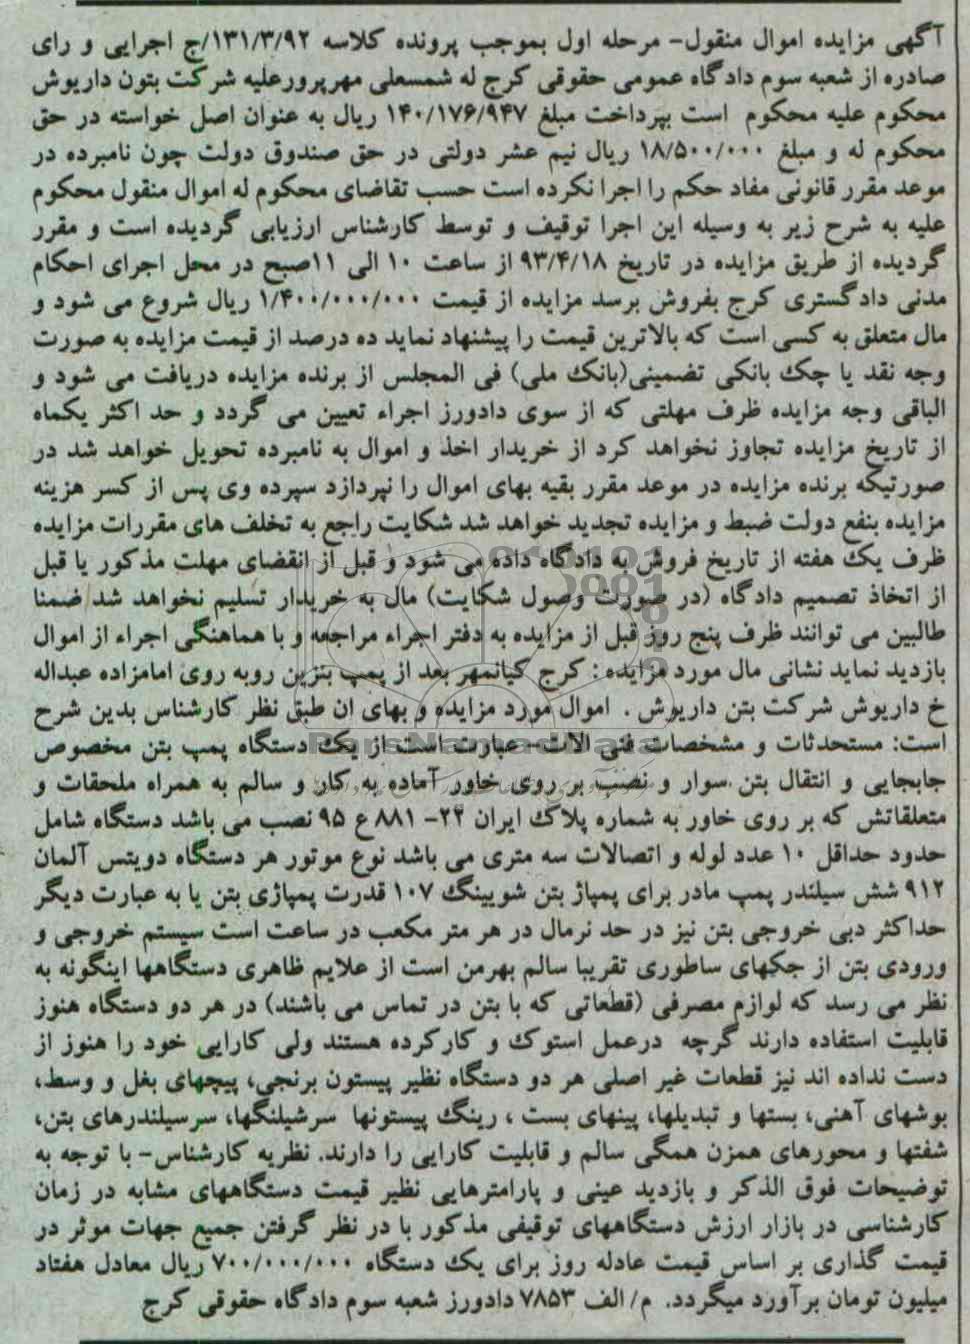 آگهی مزایده اموال منقول- مرحله اول بموجب پرونده کلاسه ۱۳۱/۳/۹۲/ج اجرایی و رای
صادره از شعبه سوم دادگاه عمومی حقوقی کرج له شمسعلی مهرپرورعلیه شرکت بتون داریوش
محکوم علیه محکوم است بپرداخت مبلغ ۱۴۰/۱۷۶/۹۴۷ ریال به عنوان اصل خواسته در حق
محکوم له و مبلغ ۱۸/۵۰۰/۰۰۰ ریال نیم عشر دولتی در حق صندوق دولت چون نامبرده در
موعد مقرر قانونی مفاد حکم را اجرا نکرده است حسب تقاضای محکوم له اموال منقول محکوم
علیه به شرح زیر به وسیله این اجرا توقیف و توسط کارشناس ارزیابی گردیده است و مقرر
گردیده از طریق مزایده در تاریخ ۹۳/۴/۱۸ از ساعت ۱۰ الی ۱۱صبح در محل اجرای احکام
مدنی دادگستری کرج بفروش برسد مزایده از قیمت ۱/۴۰۰/۰۰۰/۰۰۰ ریال شروع می شود و
مال متعلق به کسی است که بالاترین قیمت را پیشنهاد نماید ده درصد از قیمت مزایده به صورت
وجه نقد یا چک بانکی تضمینی(بانک ملی) فی المجلس از برنده مزایده دریافت می شود و
الباقی وجه مزایده ظرف مهلتی که از سوی دادورز اجراء تعیین می گردد و حد اکثر یکماه
از تاریخ مزایده تجاوز نخواهد کرد از خریدار اخذ و اموال به نامبرده تحویل خواهد شد در
صورتیکه برنده مزایده در موعد مقرر بقیه بهای اموال را نپردازد سپرده وی پس از کسر هزینه
مزایده بنفع دولت ضبط و مزایده تجدید خواهد شد شکایت راجع به تخلف های مقررات مزایده
ظرف یک هفته از تاریخ فروش به دادگاه داده می شود و قبل از انقضای مهلت مذکور یا قبل
از اتخاذ تصمیم دادگاه (در صورت وصول شکایت) مال به خریدار تسلیم نخواهد شد ضمنا
طالبین می توانند ظرف پنج روز قبل از مزایده به دفتر اجراء مراجعه و با هماهنگی اجراء از اموال
بازدید نماید نشانی مال مورد مزایده : کرج کیانمهر بعد از پمپ بنزین روبه روی امامزاده عبداله
خ داریوش شرکت بتن داریوش . اموال مورد مزایده و بهای ان طبق نظر کارشناس بدین شرح
است: مستحدثات و مشخصات فنی الات- عبارت است از یک دستگاه پمپ بتن مخصوص
جابجایی و انتقال بتن سوار و نصب بر روی خاور آماده به کار و سالم به همراه ملحقات و
متعلقاتش که بر روی خاور به شماره پلاک ایران ۲۴- ۸۸۱ ع ۹۵ نصب می باشد دستگاه شامل
حدود حداقل ۱۰ عدد لوله و اتصالات سه متری می باشد نوع موتور هر دستگاه دویتس آلمان
۹۱۲ شش سیلندر پمپ مادر برای پمپاژ بتن شویینگ ۱۰۷ قدرت پمپاژی بتن یا به عبارت دیگر
حداکثر دبی خروجی بتن نیز در حد نرمال در هر متر مکعب در ساعت است سیستم خروجی و
ورودی بتن از جکهای ساطوری تقریبا سالم بهرمن است از علایم ظاهری دستگاهها اینگونه به
نظر می رسد که لوازم مصرفی (قطعاتی که با بتن در تماس می باشند) در هر دو دستگاه هنوز
قابلیت استفاده دارند گرچه درعمل استوک و کارکرده هستند ولی کارایی خود را هنوز از
دست نداده اند نیز قطعات غیر اصلی هر دو دستگاه نظیر پیستون برنجی، پیچهای بغل و وسط،
بوشهای آهنی، بستها و تبدیلها، پینهای بست ، رینگ پیستونها سرشیلنگها، سرسیلندرهای بتن،
شفتها و محورهای همزن همگی سالم و قابلیت کارایی را دارند. نظریه کارشناس- با توجه به
توضیحات فوق الذکر و بازدید عینی و پارامترهایی نظیر قیمت دستگاههای مشابه در زمان
کارشناسی در بازار ارزش دستگاههای توقیفی مذکور با در نظر گرفتن جمیع جهات موثر در
قیمت گذاری بر اساس قیمت عادله روز برای یک دستگاه ۷۰۰/۰۰۰/۰۰۰ ریال معادل هفتاد
میلیون تومان برآورد میگردد. م/ الف ۷۸۵۳ دادورز شعبه سوم دادگاه حقوقی کرج
ParsNamadData